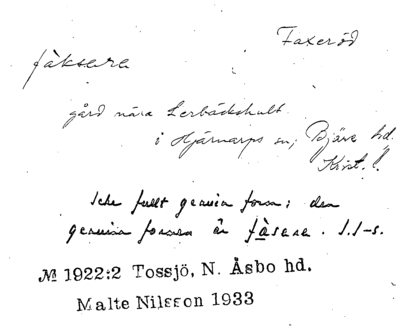 Faxeröd
fàksara
gård nära Lerbäckshult
i Hjärnarps sn, Bjäre hd.
Krist. l.
Icke fullt genuin form; den
genuina formen är fàsara. I.I-s.
№ 1922:2 Tossjö, N. Åsbo hd.
Malte Nilsson 1933